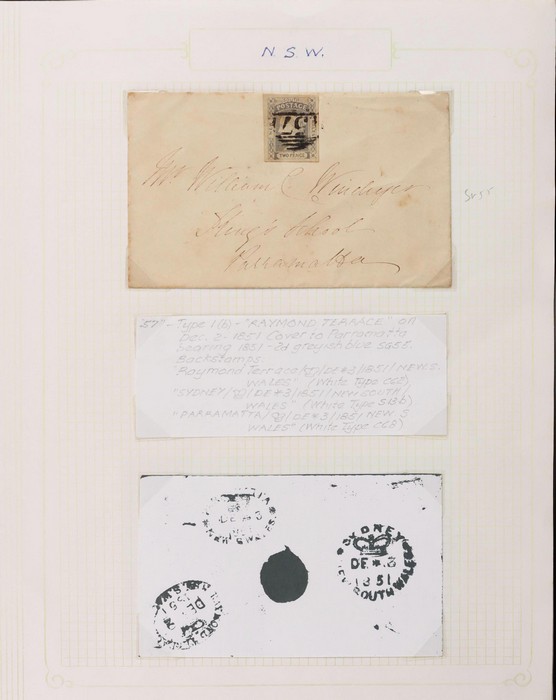 N.S.W.
POSTAGE
57
TWO PENCE
Mr William C Winchyes
King's School
Parramatta
"57" - Type 1(b) - "RAYMOND TERRACE" on
Dec. 2. 1851 Cover to Parramatta
bearing 1851 - 2d greyish blue SG55
Backstamps.
"Raymond Terrace/ /DE*3/1851/NEW S.
WALES" (White Type CC2)
"SYDNEY/ /DE*3/1851/NEW SOUTH
WALES" (White Type S13b)
"PARRAMATTA/ /DE*3/1851 NEW. S
WALES" (White Type CC2)
DE*3
WALES
SYDNEY
DE*3
1851
NEW SOUTH WALES
1851